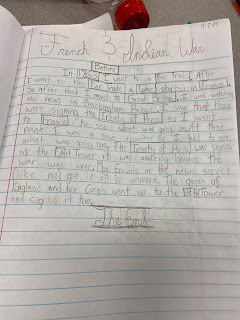 11-7-19
French 3 Indian War
Before
In 1726 I went to a Fur Trade, After
I went to the Fur Trade a War started in France.
So after that I went Great Britain. I was watching
the news on Buckingham Palace. I saw that they
were signing the Treaty of Paris so I went
to to see what was going on. At that
point I was a news reporter so I had to see
what was going on. The Treaty of Paris was signed
on the Eiffel Tower it was amazing because the
war was over. My friends in the news service
like me) got it all on camera. The queen of
England and her Corgis went up to the Eiffel Tower
and signed it too.
The End